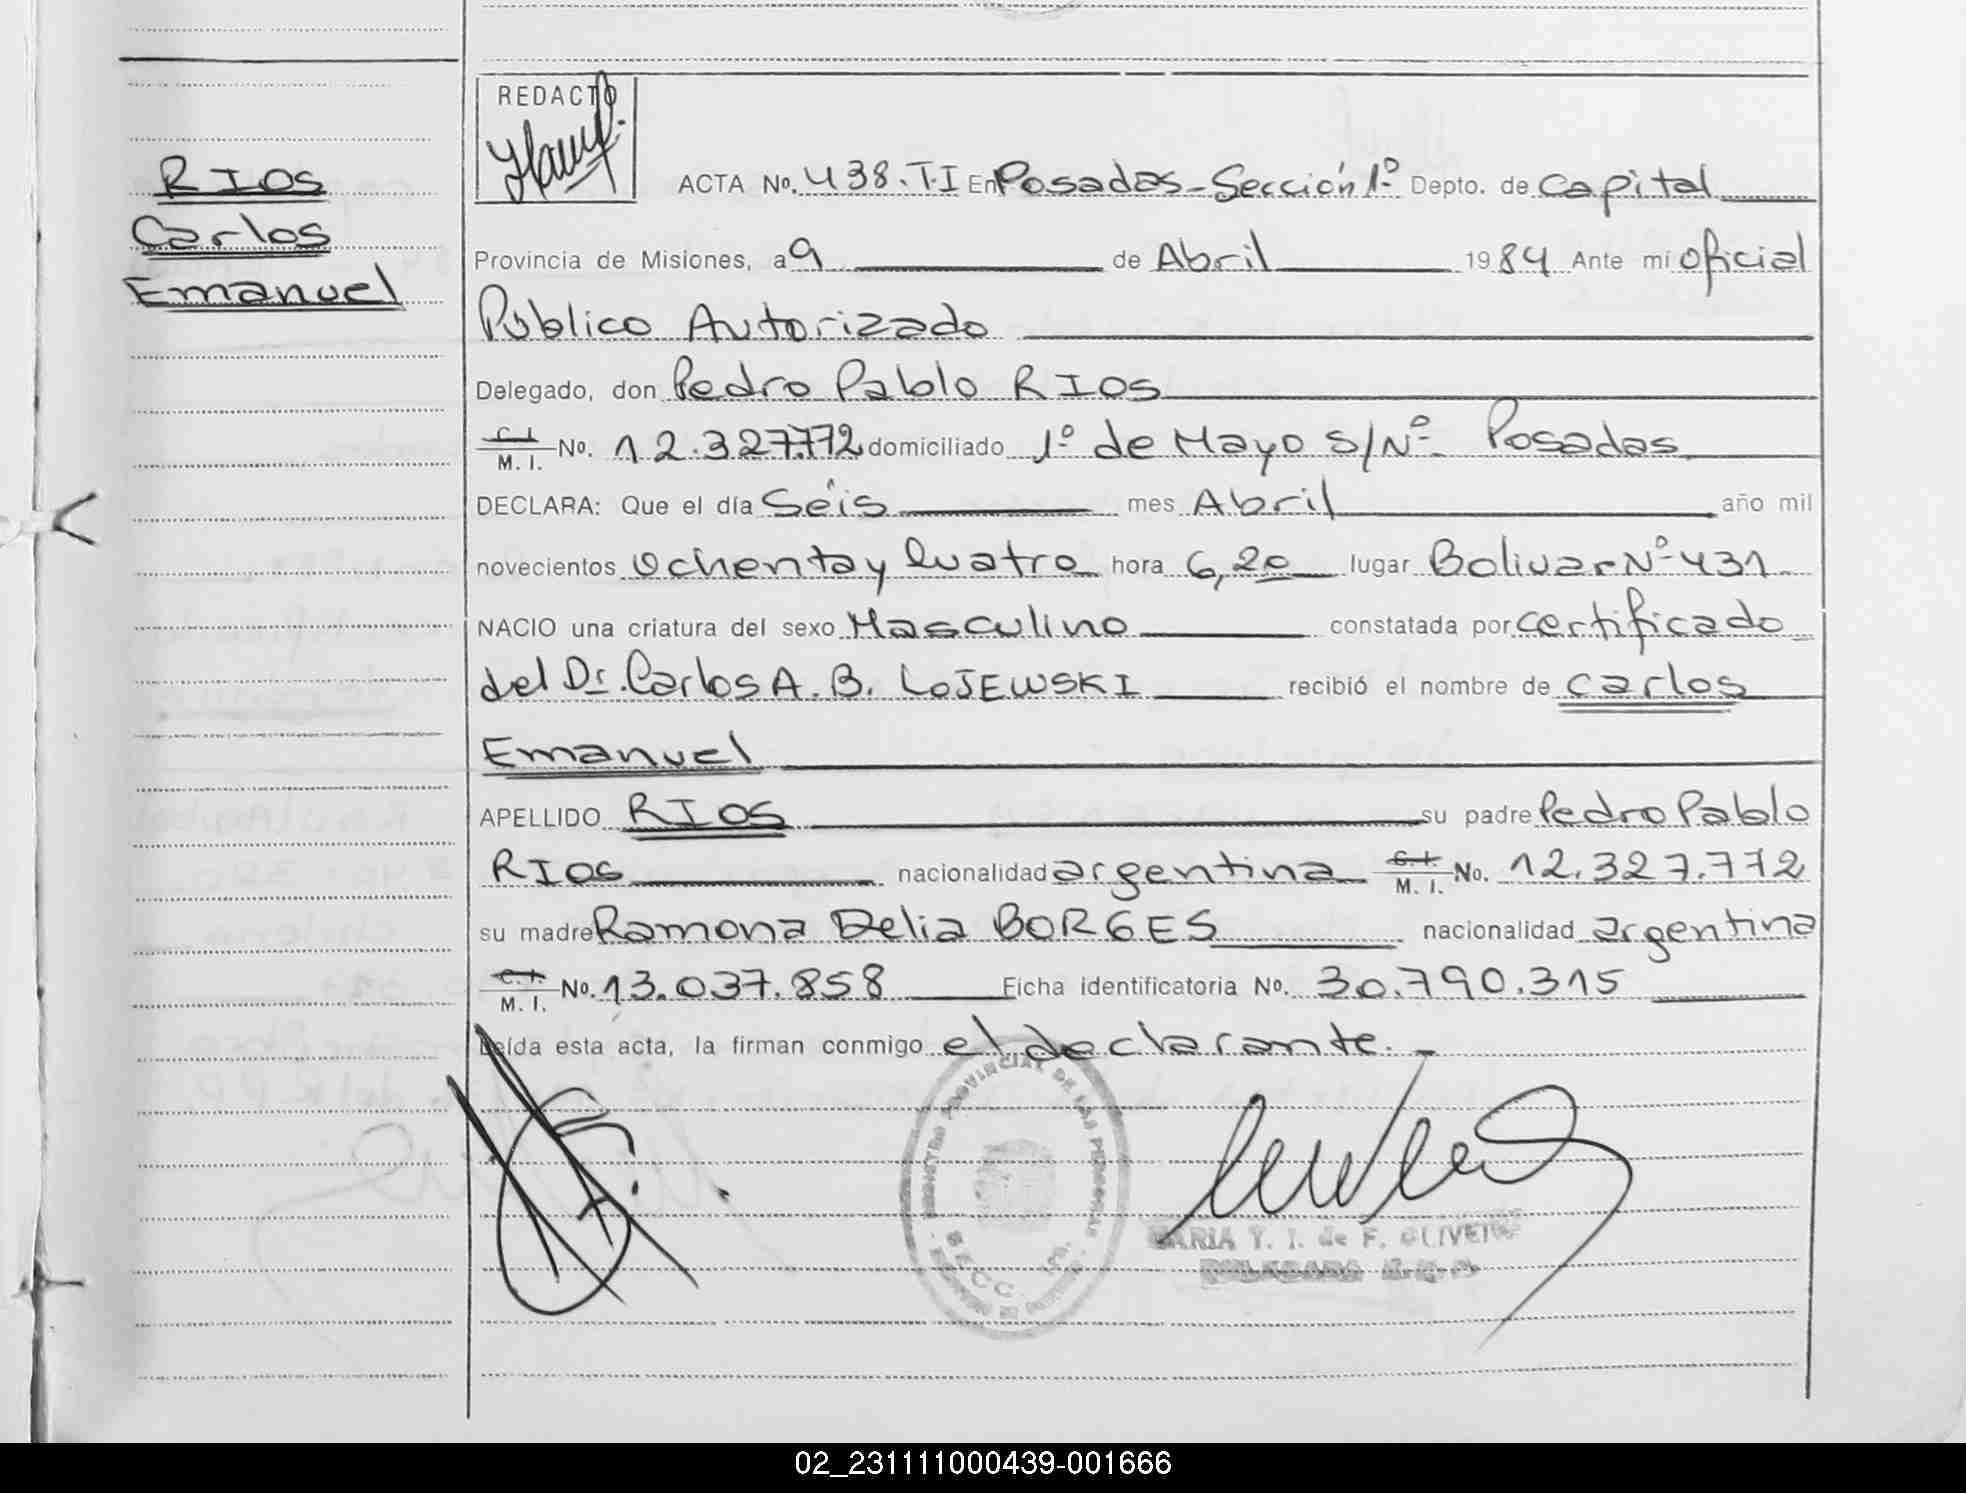 RIOS
Carlos
Emanuel
REDACTO
ACTA No. 438.T.I En Posadas-Sección 1º Depto. de Capital
Provincia de Misiones, a 9 de Abril 1984 Ante mí oficial
Público Autorizado
Delegado, don Pedro Pablo RIOS
C.I. M. I. No. 12.327.772 domiciliado 1º de Mayo S/Nº- Posadas
DECLARA: Que el día Séis mes Abril año mil
novecientos Ochenta y Cuatro hora 6,20 lugar Bolivar Nº 431
NACIO una criatura del sexo Masculino constatada por certificado
del Dr. Carlos A. B. LOJEWSKI recibió el nombre de Carlos
Emanuel
APELLIDO RIOS su padre Pedro Pablo
RIOS nacionalidad argentina C.I. M. I. No. 12.327.772
su madre Ramona Delia BORGES nacionalidad argentina
C.I. M. I. No. 13.037.858 Ficha identificatoria No. 30.790.315
Leída esta acta, la firman conmigo el declarante.-
REGISTRO PROVINCIAL DE LAS PERSONAS
SECC. 1ra.
MARIA T. I. de F. OLIVEIRA
02_231111000439-001666